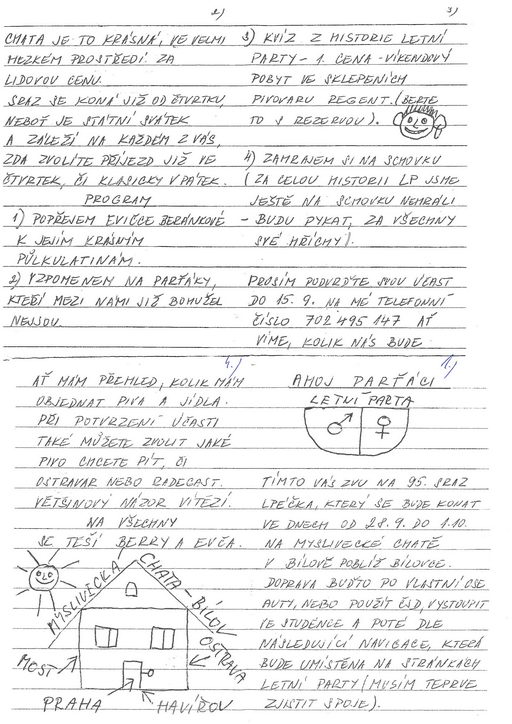 1.)
AHOJ PARŤÁCI
LETNÍ PARTA
TÍMTO VÁS ZVU NA 95. SRAZ
LPÉČKA, KTERÝ SE BUDE KONAT
VE DNECH OD 28.9. DO 1.10.
NA MYSLIVECKÉ CHATĚ
V BÍLOVĚ POBLÍŽ BÍLOVCE.
DOPRAVA BUĎTO PO VLASTNÍ OSE
AUTY, NEBO POUŽÍT ČSD, VYSTOUPIT
VE STUDÉNCE A POTÉ DLE
NÁSLEDUJÍCÍ NAVIGACE, KTERÁ
BUDE UMÍSTĚNA NA STRÁNKÁCH
LETNÍ PARTY (MUSÍM TEPRVE
ZJISTIT SPOJE).
2)
CHATA JE TO KRÁSNÁ, VE VELMI
HEZKÉM PROSTŘEDÍ ZA
LIDOVOU CENU.
SRAZ SE KONÁ JIŽ OD ČTVRTKU,
NEBOŤ JE STÁTNÍ SVÁTEK
A ZÁLEŽÍ NA KAŽDÉM Z VÁS,
ZDA ZVOLÍTE PŘÍJEZD JIŽ VE
ČTVRTEK, ČI KLASICKY V PÁTEK.
PROGRAM
1) POPŘEJEM EVIČCE BERÁNKOVÉ
K JEJÍM KRÁSNÝM
PŮLKULATINÁM.
2) VZPOMENEM NA PARŤÁKY,
KTEŘÍ MEZI NÁMI JIŽ BOHUŽEL
NEJSOU.
3)
3) KVÍZ Z HISTORIE LETNÍ
PARTY - 1. CENA - VÍKENDOVÝ
POBYT VE SKLEPENÍCH
PIVOVARU REGENT. (BERTE
TO S REZERVOU).
4) ZAHRAJEM SI NA SCHOVKU
(ZA CELOU HISTORII LP JSME
JEŠTĚ NA SCHOVKU NEHRÁLI
- BUDU PYKAT, ZA VŠECHNY
SVÉ HŘÍCHY).
PROSÍM PODVRĎTE SVOU ÚČAST
DO 15.9. NA MÉ TELEFONNÍ
ČÍSLO 702 495 147 AŤ
VÍME, KOLIK NÁS BUDE
4.)
AŤ MÁM PŘEHLED, KOLIK MÁM
OBJEDNAT PIVA A JÍDLA.
PŘI POTVRZENÍ ÚČASTI
TAKÉ MŮŽETE ZVOLIT JAKÉ
PIVO CHCETE PÍT, ČI
OSTRAVAR NEBO RADEGAST.
VĚTŠINOVÝ NÁZOR VÍTĚZÍ.
NA VŠECHNY
SE TĚŠÍ BERRY A EVČA.
MYSLIVECKÁ
CHATA - BÍLOV
OSTRAVA
MOST
PRAHA
HAVÍŘOV